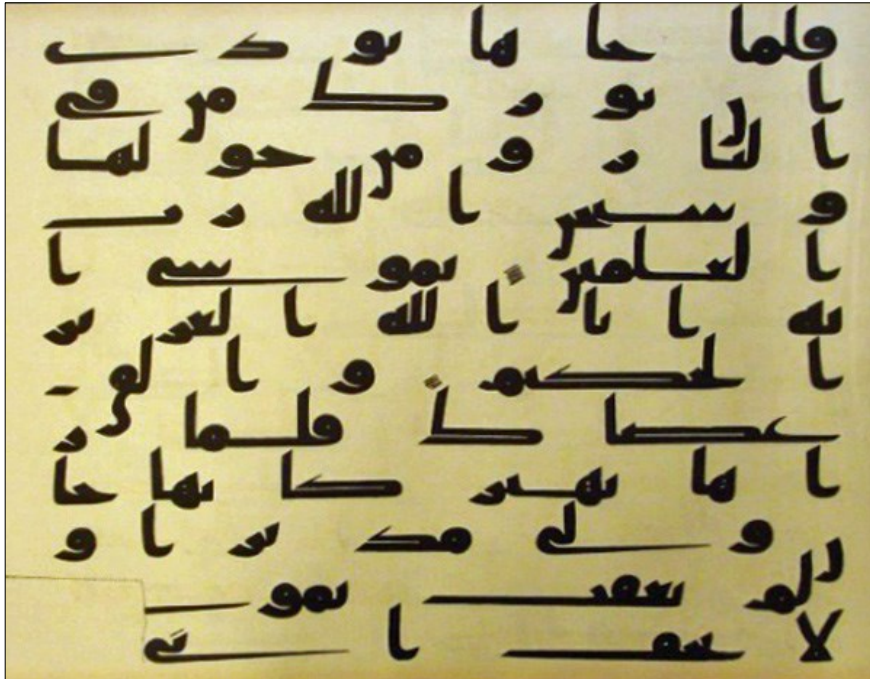 فلما جاها نودى
ان بورك من في
النار ومن حولها
وسبحن الله رب
العلمين يموسى ا
نه انا الله العزيز
الحكيم والق
عصاك فلما ر
اها تهتز كانها جا
ن ولى مدبرا و
لم يعقب يموسى
لا تخف انى